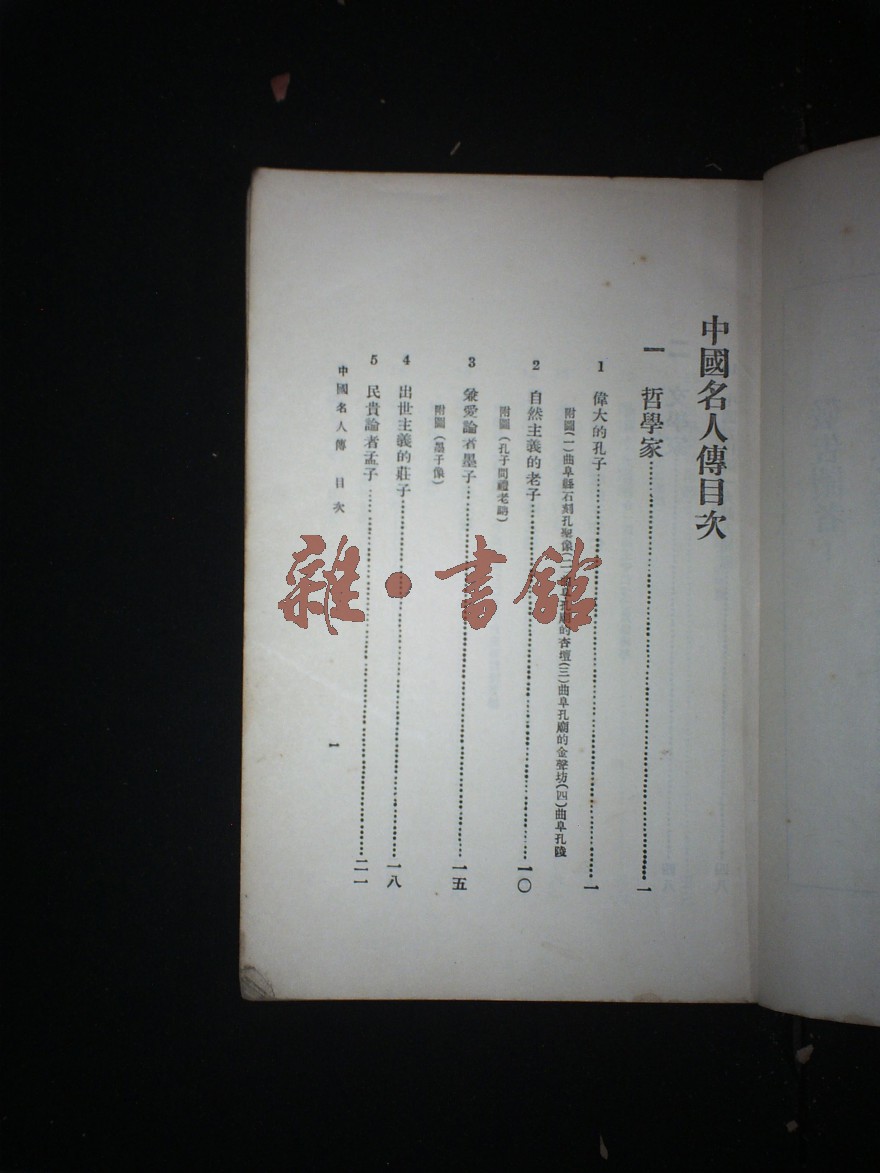 中國名人傳目次
一　哲學家……一
1　偉大的孔子……一
附圖(一)曲阜縣石刻孔聖像(二)曲阜孔廟的杏壇(三)曲阜孔廟的金聲坊(四)曲阜孔陵
2　自然主義的老子……一〇
附圖(孔子問禮老聃)
3　兼愛論者墨子……一五
附圖(墨子像)
4　出世主義的莊子……一八
5　民貴論者孟子……二一
中國名人傳　目次　一
雜·書館